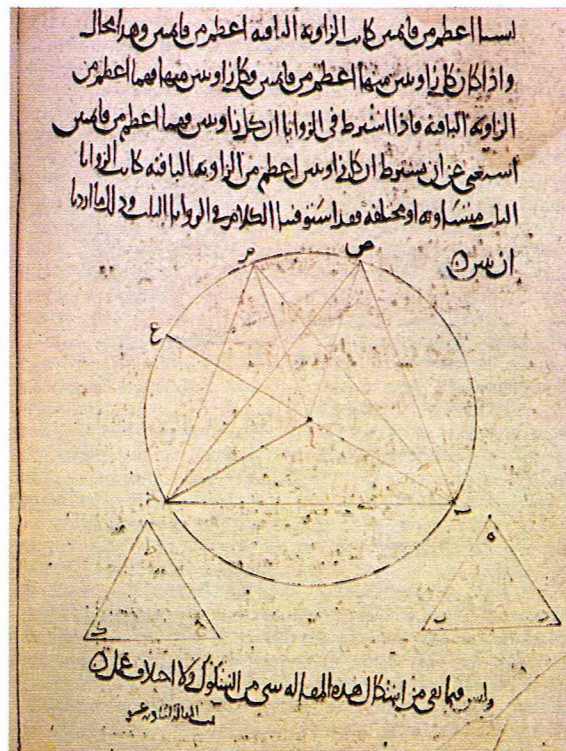 اعظم من قائمتين كانت الزاوية الباقية اعظم من قائمتين وهذا محال
واذا كان كل زاويتين منها اعظم من قائمتين فكل زاويتين منها فهما اعظم من
الزاوية الباقية فاذا اشترط في الزوايا ان كل زاويتين فهما اعظم من قائمتين
استغنى عن ان يشترط ان كل زاويتين اعظم من الزاوية الباقية كانت الزوايا
الثلث متساوية او مختلفة فقد استوفينا الكلام في الزوايا الثلث وذلك ما اردنا
ان نبين
ص
ع
ا
ب
ه
وليس فيما بقي من اشكال هذه المقالة شي من الشكوك ولا اختلاف عمل
المقالة